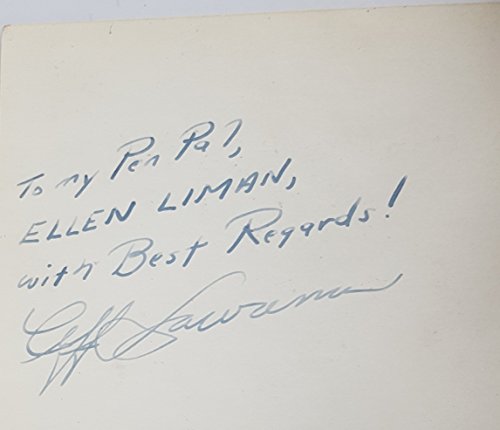 To my Pen Pal,
ELLEN LIMAN,
with Best Regards!